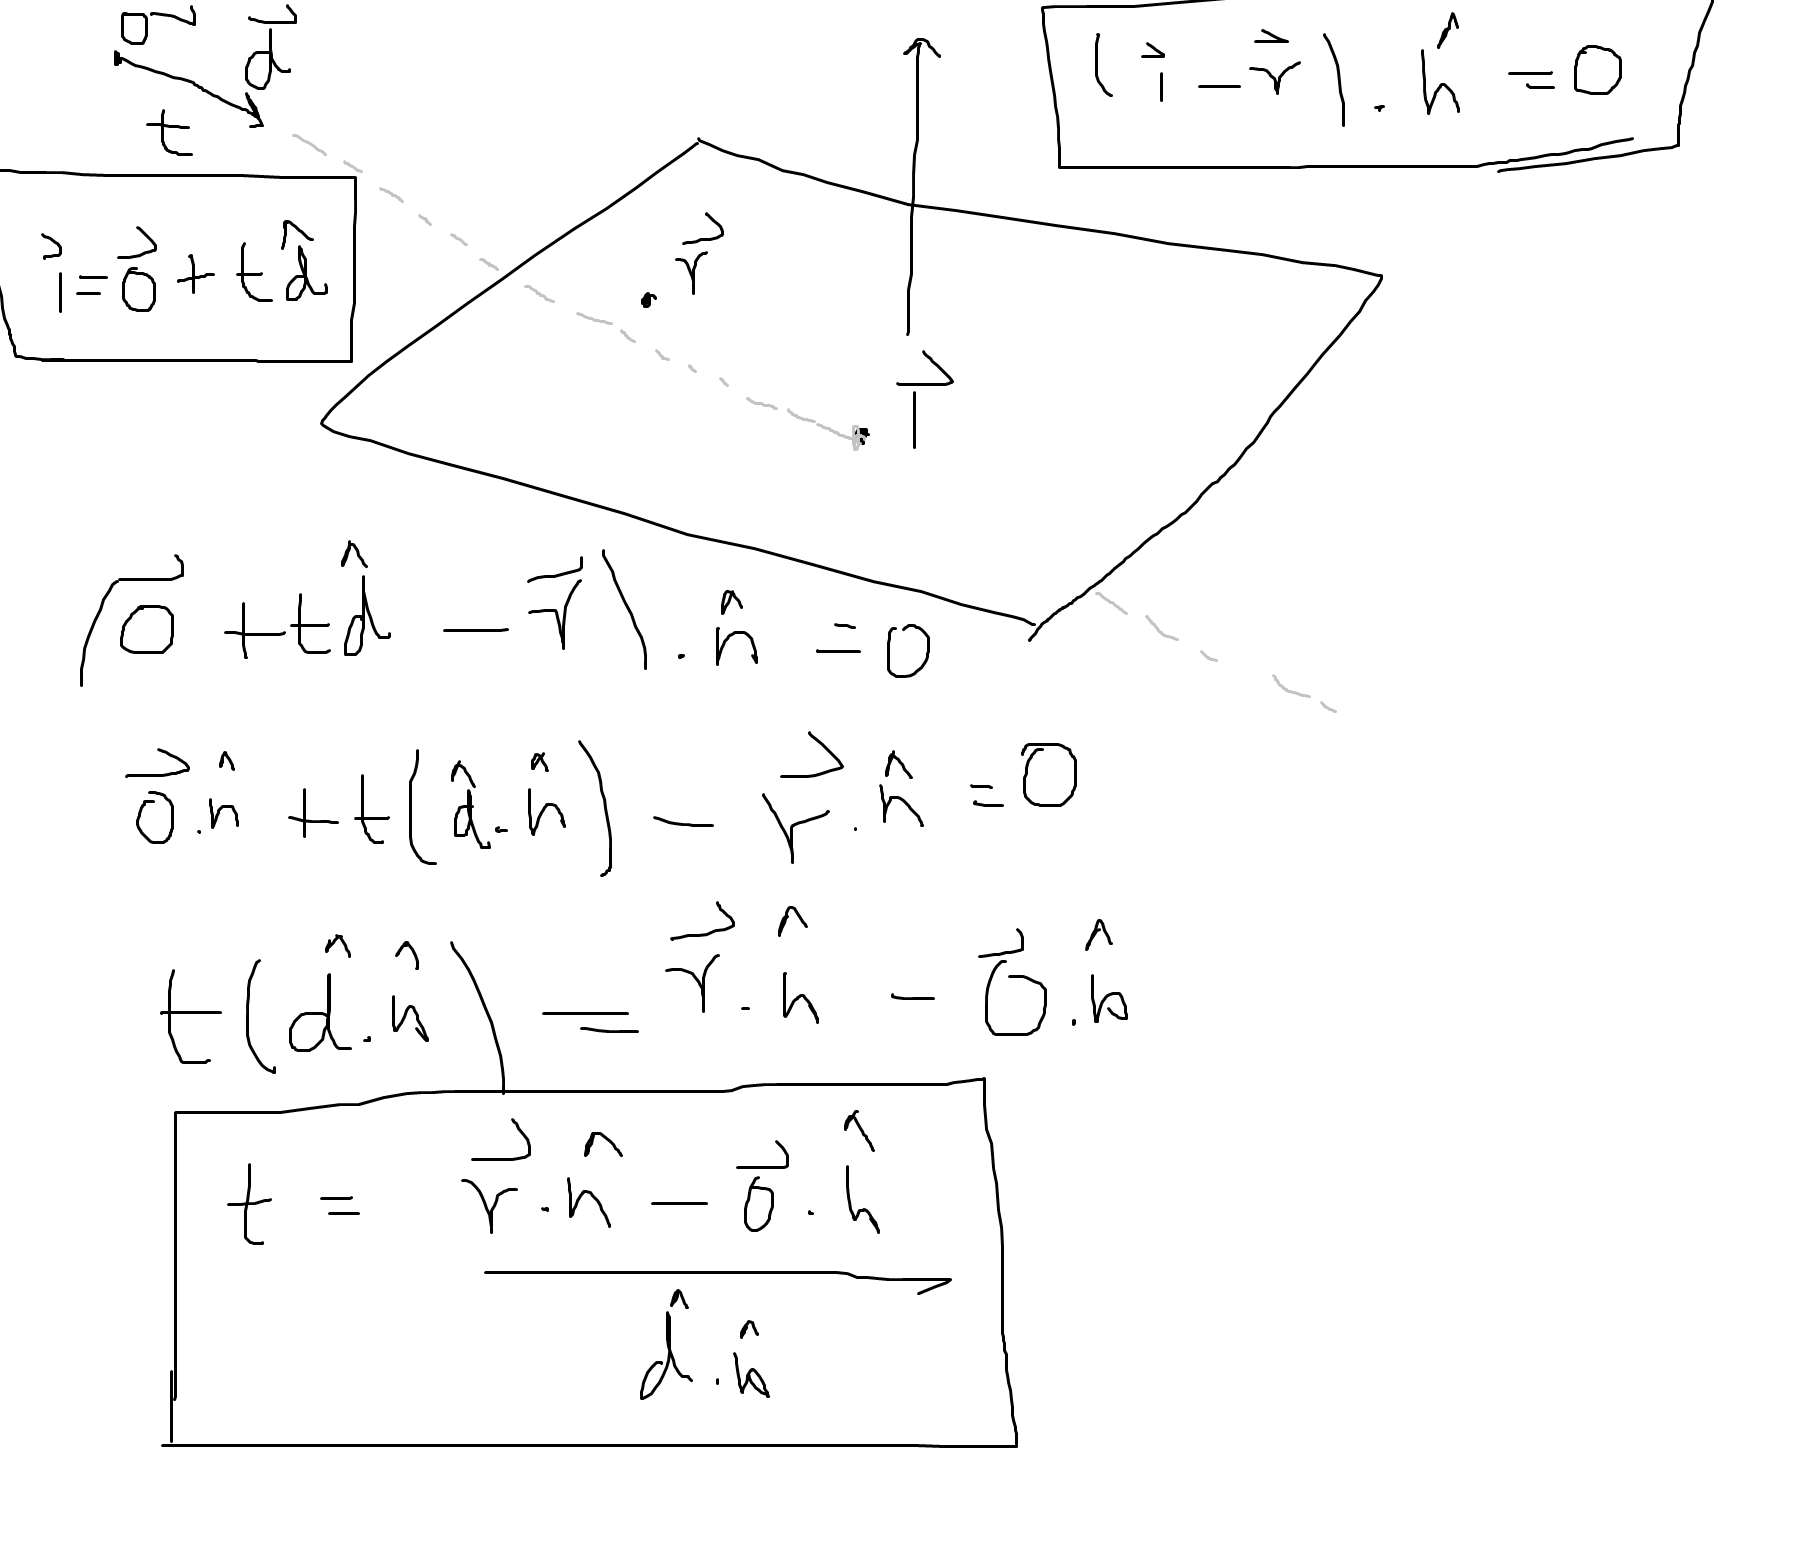 o⃗ d⃗
t
(i⃗ − r⃗) . n̂ = 0
i⃗ = o⃗ + t d̂
r⃗
i⃗
(o⃗ + t d̂ − r⃗) . n̂ = 0
o⃗ . n̂ + t(d̂ . n̂) − r⃗ . n̂ = 0
t(d̂ . n̂) = r⃗ . n̂ − o⃗ . n̂
t = r⃗ . n̂ − o⃗ . n̂
d̂ . n̂